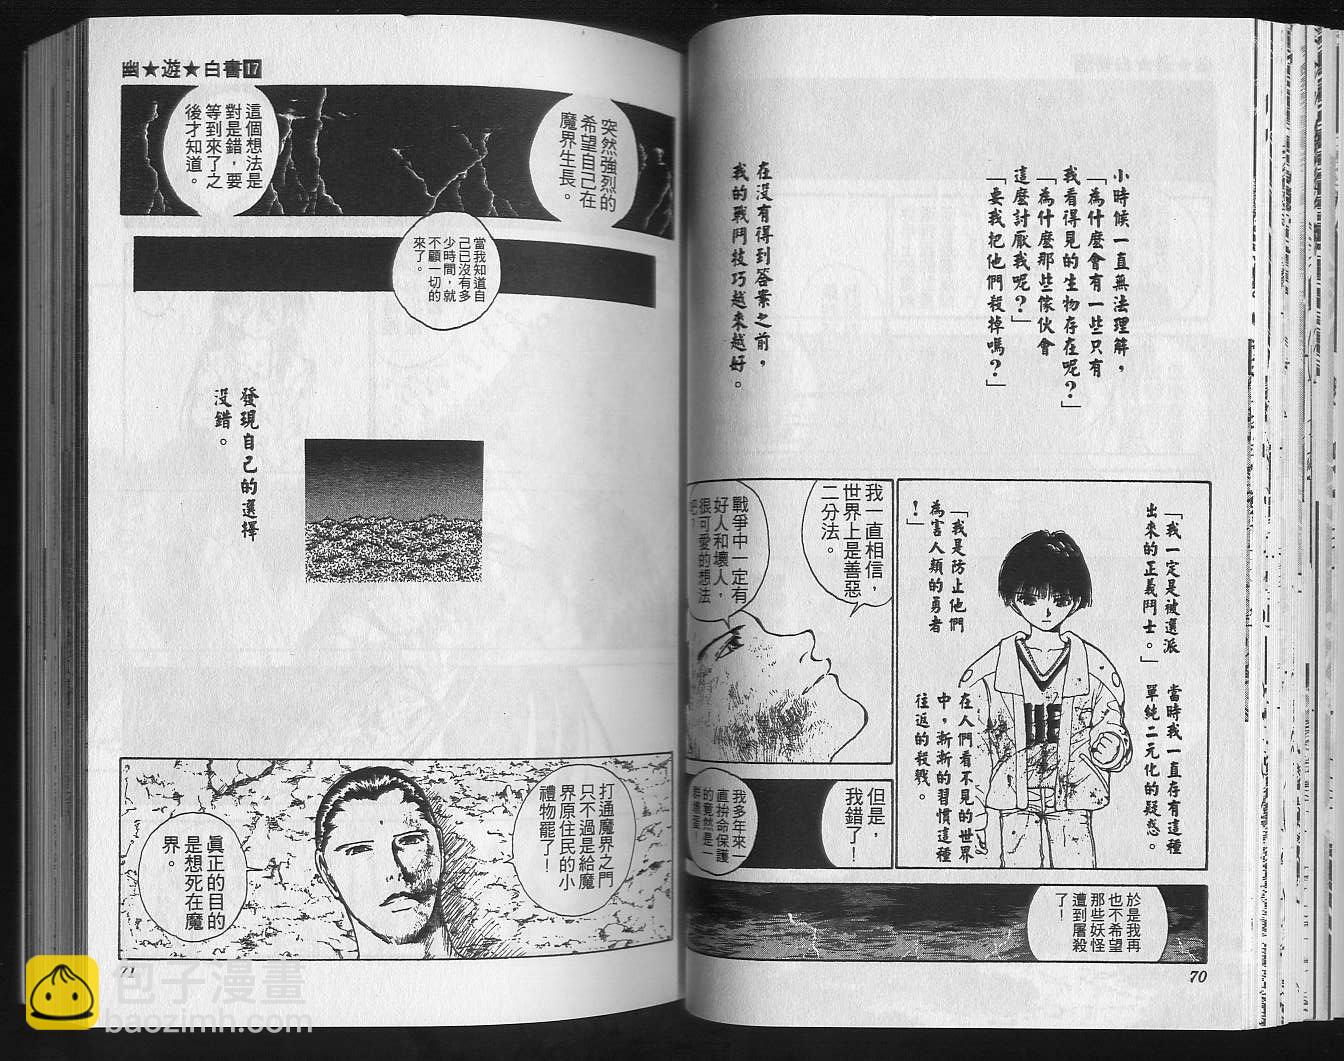 小時候一直無法理解，
「為什麼會有一些只有
我看得見的生物存在呢？」
「為什麼那些傢伙會
這麼討厭我呢？」
「要我把他們殺掉嗎？」
在沒有得到答案之前，
我的戰鬥技巧越來越好。
「我一定是被選派
出來的正義鬥士。」
當時我一直存有這種
單純二元化的疑惑。
「我是防止他們
為害人類的勇者
！」
在人們看不見的世界
中，漸漸的習慣這種
往返的殺戮。
我一直相信，
世界上是善惡
二分法。
戰爭中一定有
好人和壞人，
很可愛的想法
吧？
但是，
我錯了！
我多年來一
直拚命保護
的竟然是一
於是我再
也不希望
那些妖怪
遭到屠殺
了！
70
幽★遊★白書17
突然強烈的
希望自己在
魔界生長。
這個想法是
對是錯，要
等到來了之
後才知道。
當我知道自
己已沒有多
少時間，就
不顧一切的
來了。
發現自己的選擇
沒錯。
打通魔界之門
只不過是給魔
界原住民的小
禮物罷了！
真正的目的
是想死在魔
界。
71
包子漫畫
baozimh.com